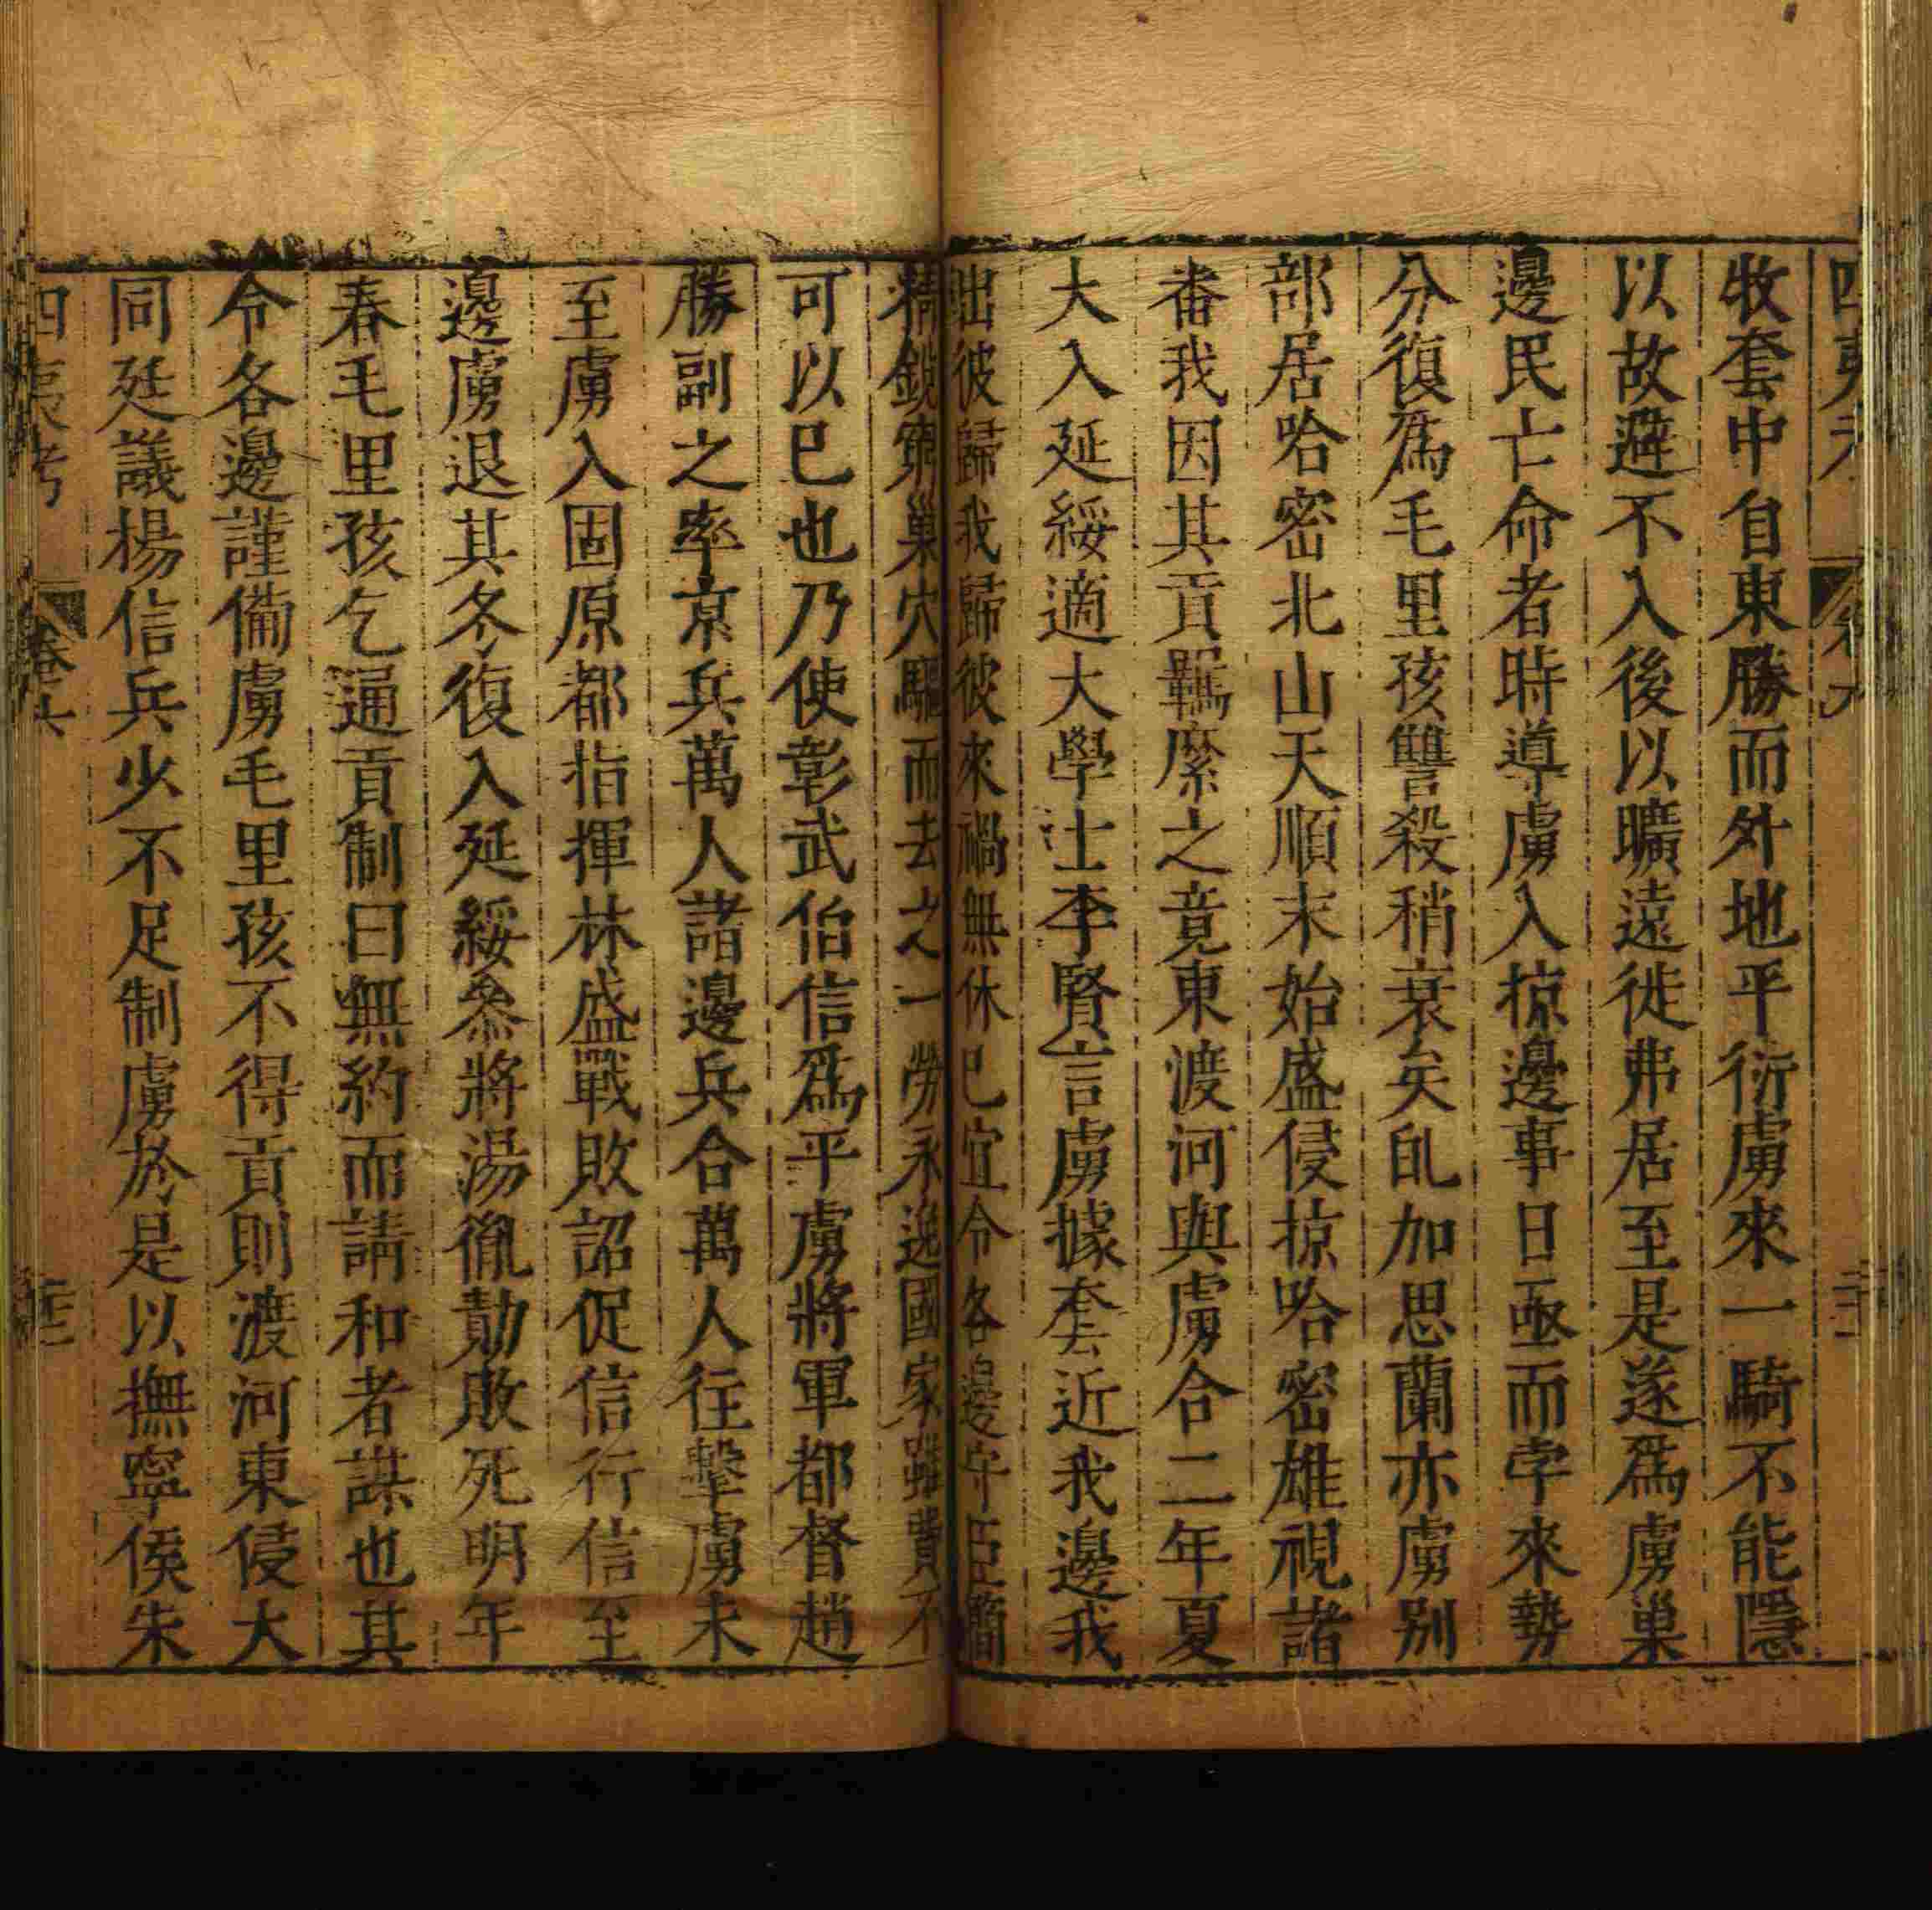 牧套中自東勝而外地平衍虜來一騎不能隱
以故避不入後以曠遠徙弗居至是遂爲虜巢
邊民亡命者時導虜入掠邊事日亟而孛來勢
分復爲毛里孩讐殺稍衰矣乩加思蘭亦虜別
部居哈密北山天順末始盛侵掠哈密雄視諸
番我因其貢羈縻之竟東渡河與虜合二年夏
大入延綏適大學士李賢言虜據套近我邊我
出彼歸我歸彼來禍無休已宜令各邊守臣簡
精銳窮巢穴驅而去之一勞永逸國家雖費不
可以已也乃使彰武伯信爲平虜將軍都督趙
勝副之率京兵萬人諸邊兵合萬人往擊虜未
至虜入固原都指揮林盛戰敗詔促信行信至
邊虜退其冬復入延綏叅將湯胤勣敗死明年
春毛里孩乞通貢制曰無約而請和者謀也其
令各邊謹備虜毛里孩不得貢則渡河東侵大
同廷議楊信兵少不足制虜於是以撫寧侯朱
四夷考 卷六